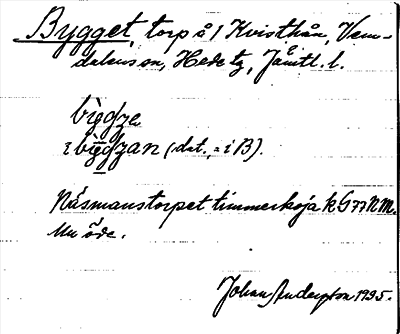 Bygget, torp å 1 Kvisthån, Vem-
dalens sn, Hede tg, Jämtl. l.
bìgdze
i bìgdzan (dat., = i B).
Näsmanstorpet timmerkoja k G77NM.
Nu öde.
Johan Anderzton 1935.